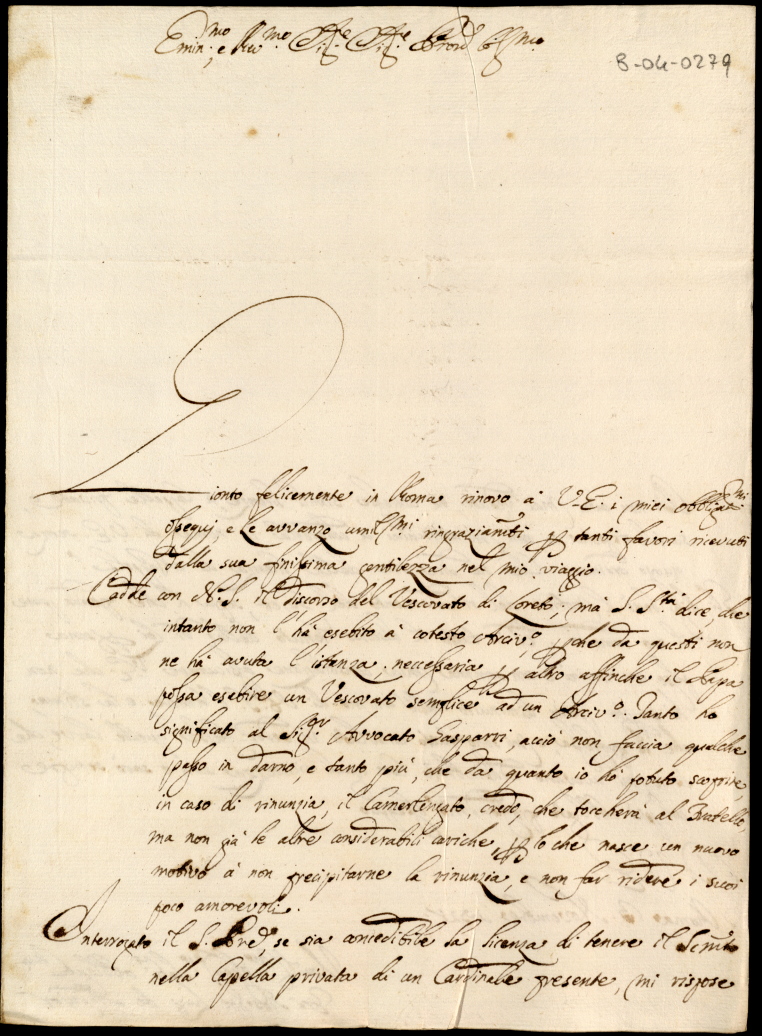 Emin.mo e Rev.mo Sig.re Sig.re Pron Col.mo
B-04-0279
Gionto felicemente in Roma rinovo à V.E. i miei obbligat.mi
ossequj, e le avvanzo umil.mi ringraziam.ti p tanti favori ricevuti
dalla sua finissima gentilezza nel mio viaggio.
Cadde con N. S. il discorso del Vescovato di Loreto; mà S. S.tà dice, che
intanto non l'hà esebito à cotesto Arciv.o, pche da questi non
ne hà avuta l'istanza, necessaria p altro affinche il Papa
possa esebire un Vescovato semplice ad un Arciv.o. Tanto ho
significato al Sig.r Avvocato Gasparri, acciò non faccia qualche
passo in darno, e tanto più, che da quanto io hò potuto scoprire,
in caso di rinunzia, il Camerlengato, credo, che toccherà al Fratello
ma non già le altre considerabili cariche, p lo che nasce un nuovo
motivo à non precipitarne la rinunzia, e non far ridere i suoi
poco amorevoli.
Interrogato il S. Pre, se sia concedibile la licenza di tenere il Scruto
nella Capella privata di un Cardinale presente, mi rispose